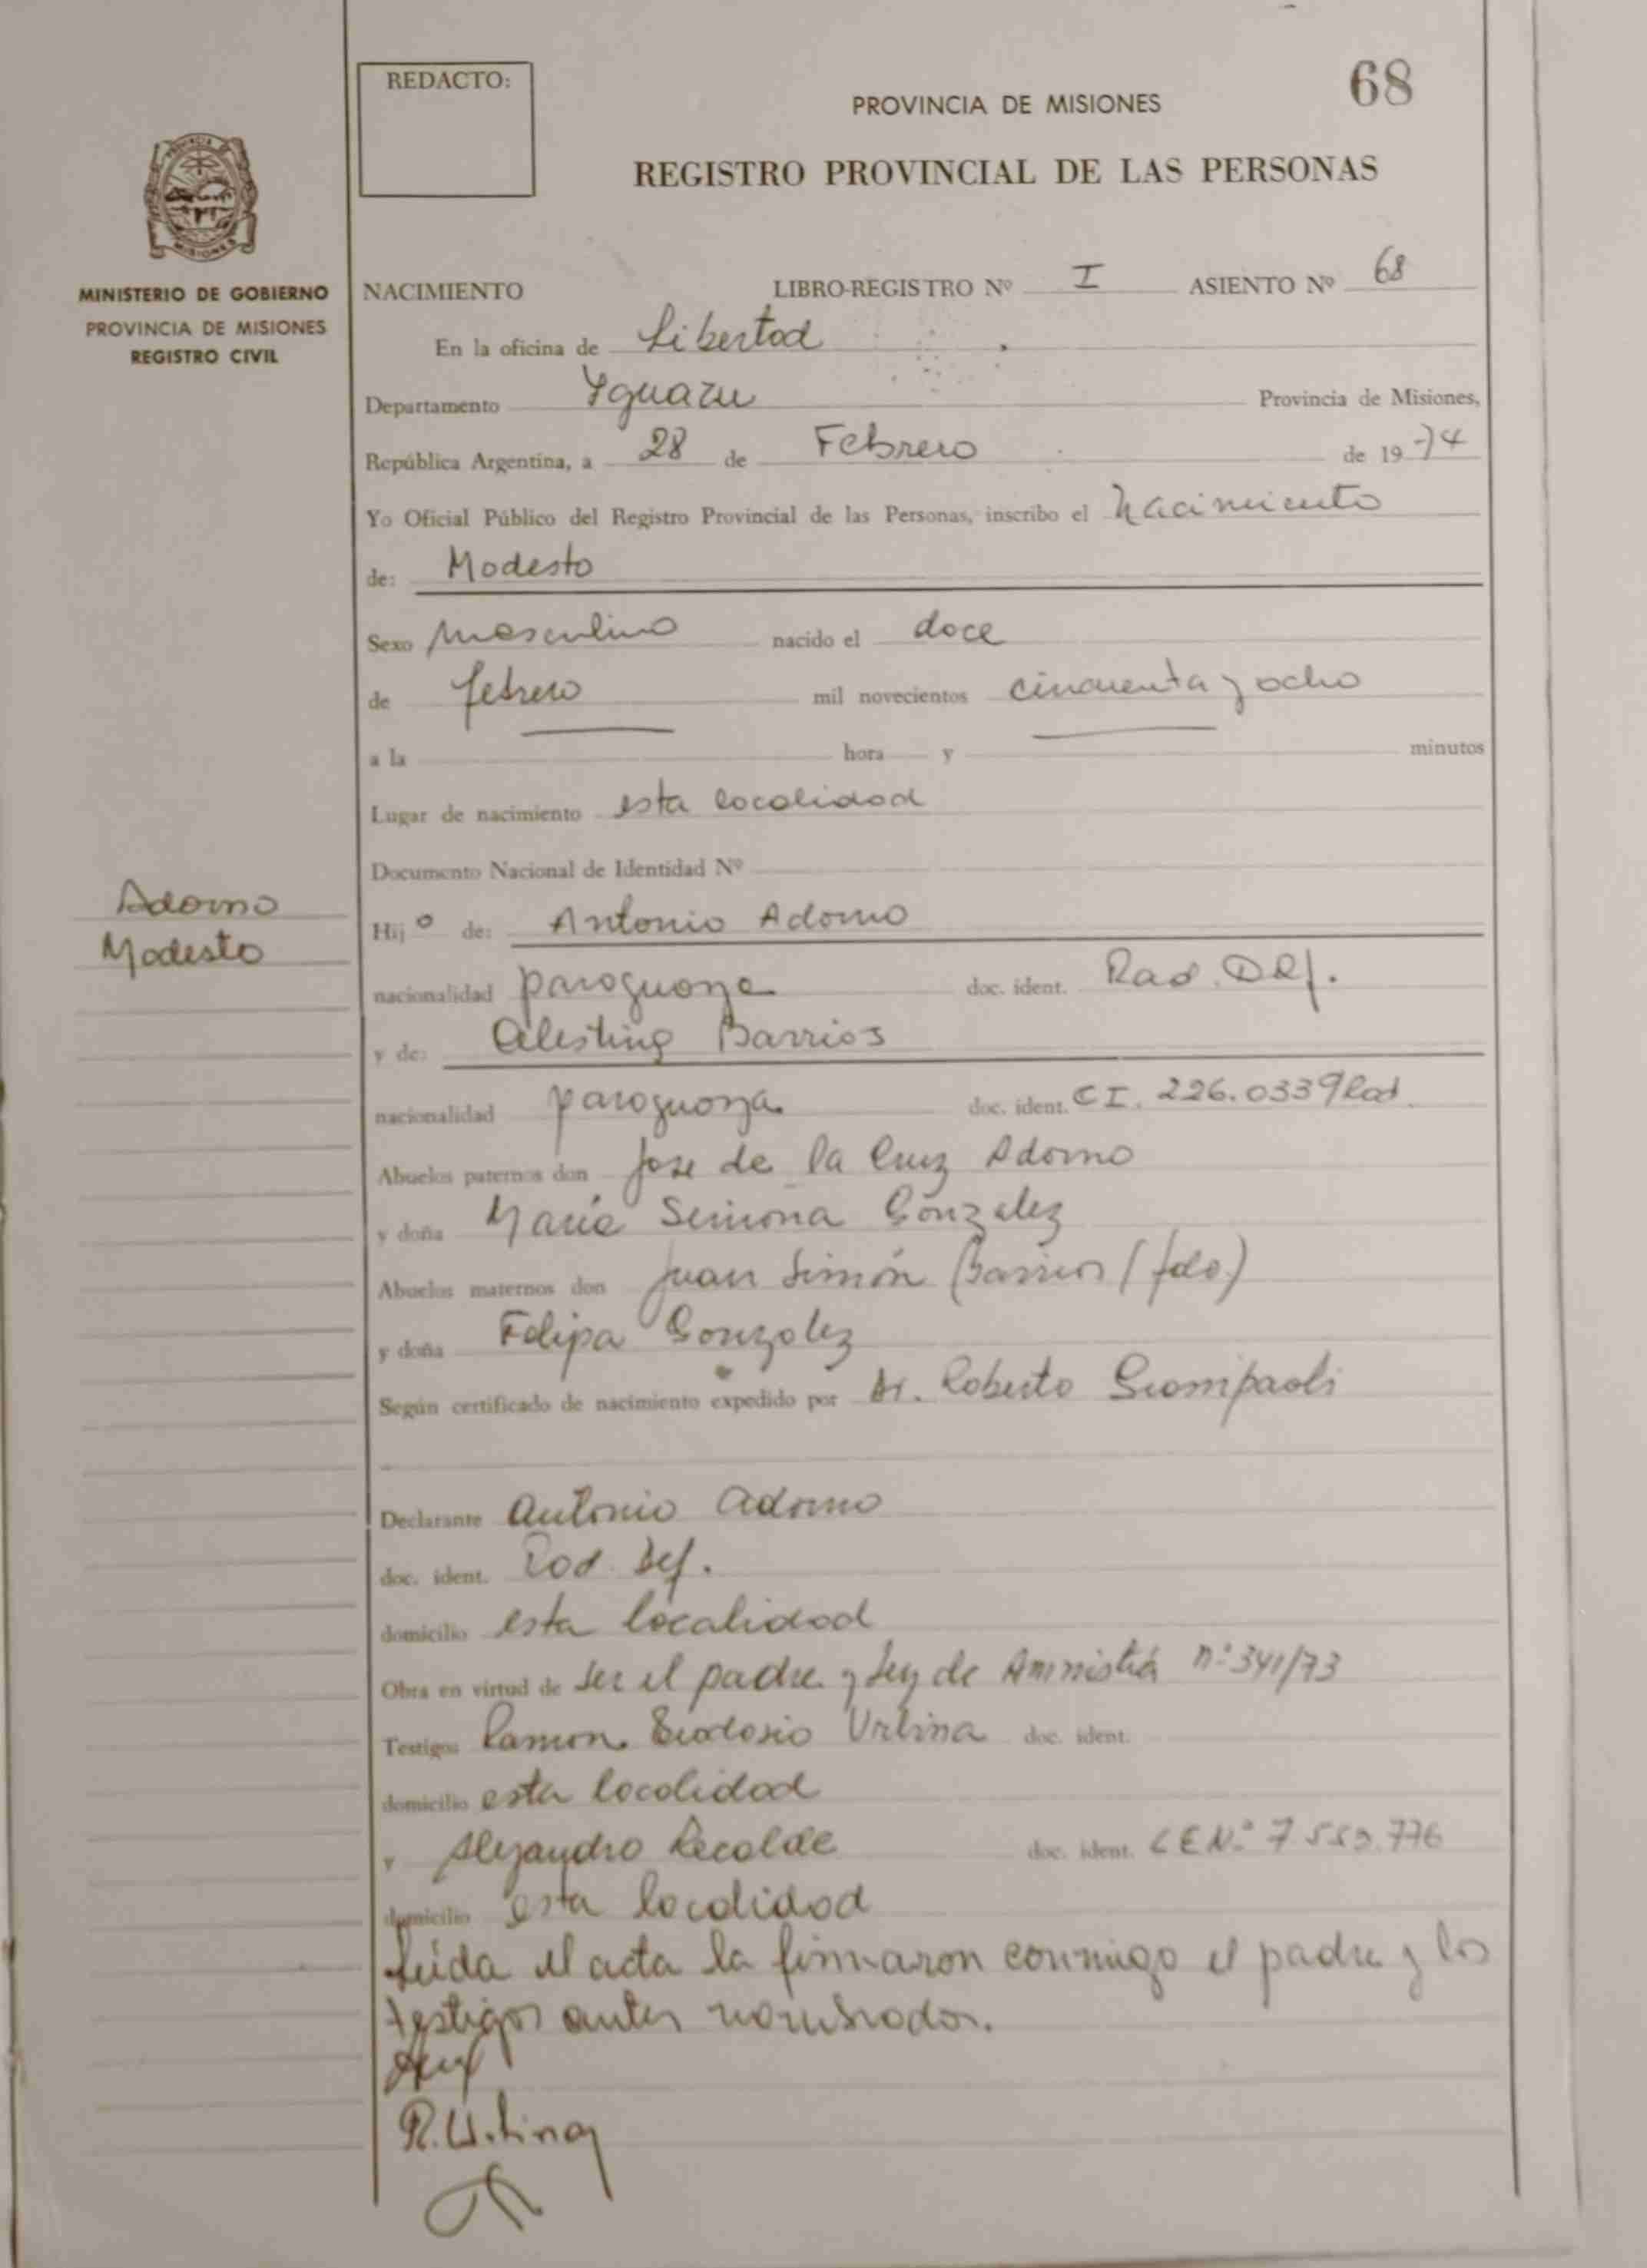 REDACTO:
68
PROVINCIA DE MISIONES
REGISTRO PROVINCIAL DE LAS PERSONAS
PROVINCIA
MISIONES
MINISTERIO DE GOBIERNO
PROVINCIA DE MISIONES
REGISTRO CIVIL
NACIMIENTO LIBRO-REGISTRO Nº I ASIENTO Nº 68
En la oficina de Libertad
Departamento Yguazu Provincia de Misiones,
República Argentina, a 28 de Febrero de 19 74
Yo Oficial Público del Registro Provincial de las Personas, inscribo el Nacimiento
de: Modesto
Sexo masculino nacido el doce
de febrero mil novecientos cincuenta y ocho
a la hora y minutos
Lugar de nacimiento esta localidad
Documento Nacional de Identidad Nº
Adorno
Modesto
Hijo de: Antonio Adorno
nacionalidad paraguaya doc. ident. Rad.
y de: Celestina Barrios
nacionalidad paraguaya doc. ident. CI. 226.0339 Rad.
Abuelos paternos don Jose de la Cruz Adorno
y doña María Simona Gonzalez
Abuelos maternos don Juan Simón Barrios (fdo.)
y doña Felipa Gonzalez
Según certificado de nacimiento expedido por Dr. Roberto Giompaoli
Declarante Antonio Adorno
doc. ident. Rad. Def.
domicilio esta localidad
Obra en virtud de ser el padre y Ley de Amnistía nº 341/73
Testigos Ramon Urbina doc. ident.
domicilio esta localidad
y Alejandro Recalde doc. ident. LE Nº 7
domicilio esta localidad
Leída el acta la firmaron conmigo el padre y los
testigos antes nombrados.
R. Urbina